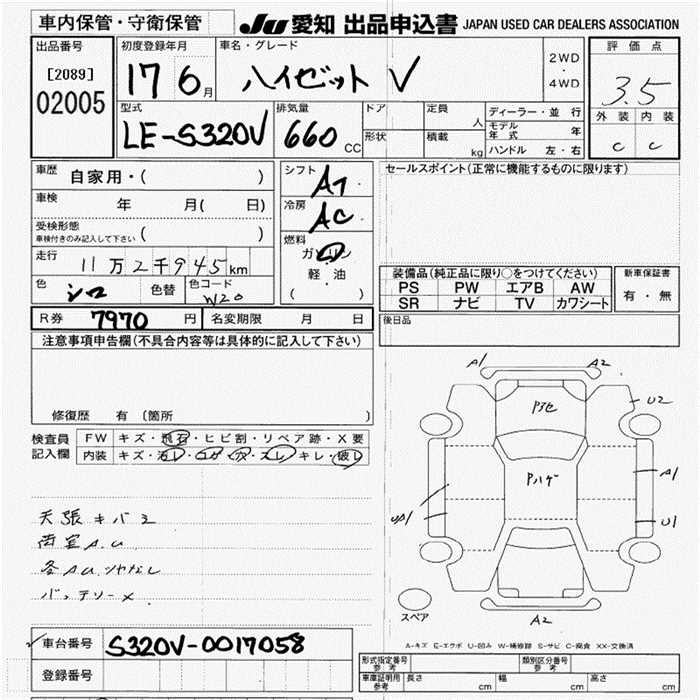 車内保管・守衛保管
JU 愛知 出品申込書 JAPAN USED CAR DEALERS ASSOCIATION
出品番号
[2089]
02005
初度登録年月
17 6月
車名・グレード
ハイゼット V
2WD
・
4WD
評価点
3.5
外装 内装
C C
型式
LE-S320V
排気量
660 CC
ドア
定員
人
形状
積載
kg
ディーラー・並行
モデル年式 年
ハンドル 左・右
車歴
自家用・( )
車検
年 月( 日)
受検形態
車検付きのみ記入して下さい ( )
走行
11万2千945km
色
シロ
色替
色コード
W20
シフト
AT
冷房
AC
燃料
ガソリン
軽・油
( )
セールスポイント(正常に機能するものに限ります)
装備品(純正品に限り○をつけてください)
PS PW エアB AW
SR ナビ TV カワシート
新車保証書
有・無
R券 7970 円
名変期限 月 日
後日品
注意事項申告欄(不具合内容等は具体的に記入して下さい)
修復歴 有(箇所 )
検査員記入欄
FW キズ・飛石・ヒビ割・リペア跡・X要
内装 キズ・汚レ・コゲ・穴・スレ・キレ・破レ
天張キバミ
バッテリーX
A1 A2
Pアセ
U2
Pハゲ
A1
U1
A2
スペア
A-キズ E-エクボ U-凹み W-補修跡 S-サビ C-腐食 XX-交換済
車台番号 S320V-0017058
登録番号
型式指定番号 参考
類別区分番号 参考
車庫証明用 参考
長さ cm 幅 cm 高さ cm